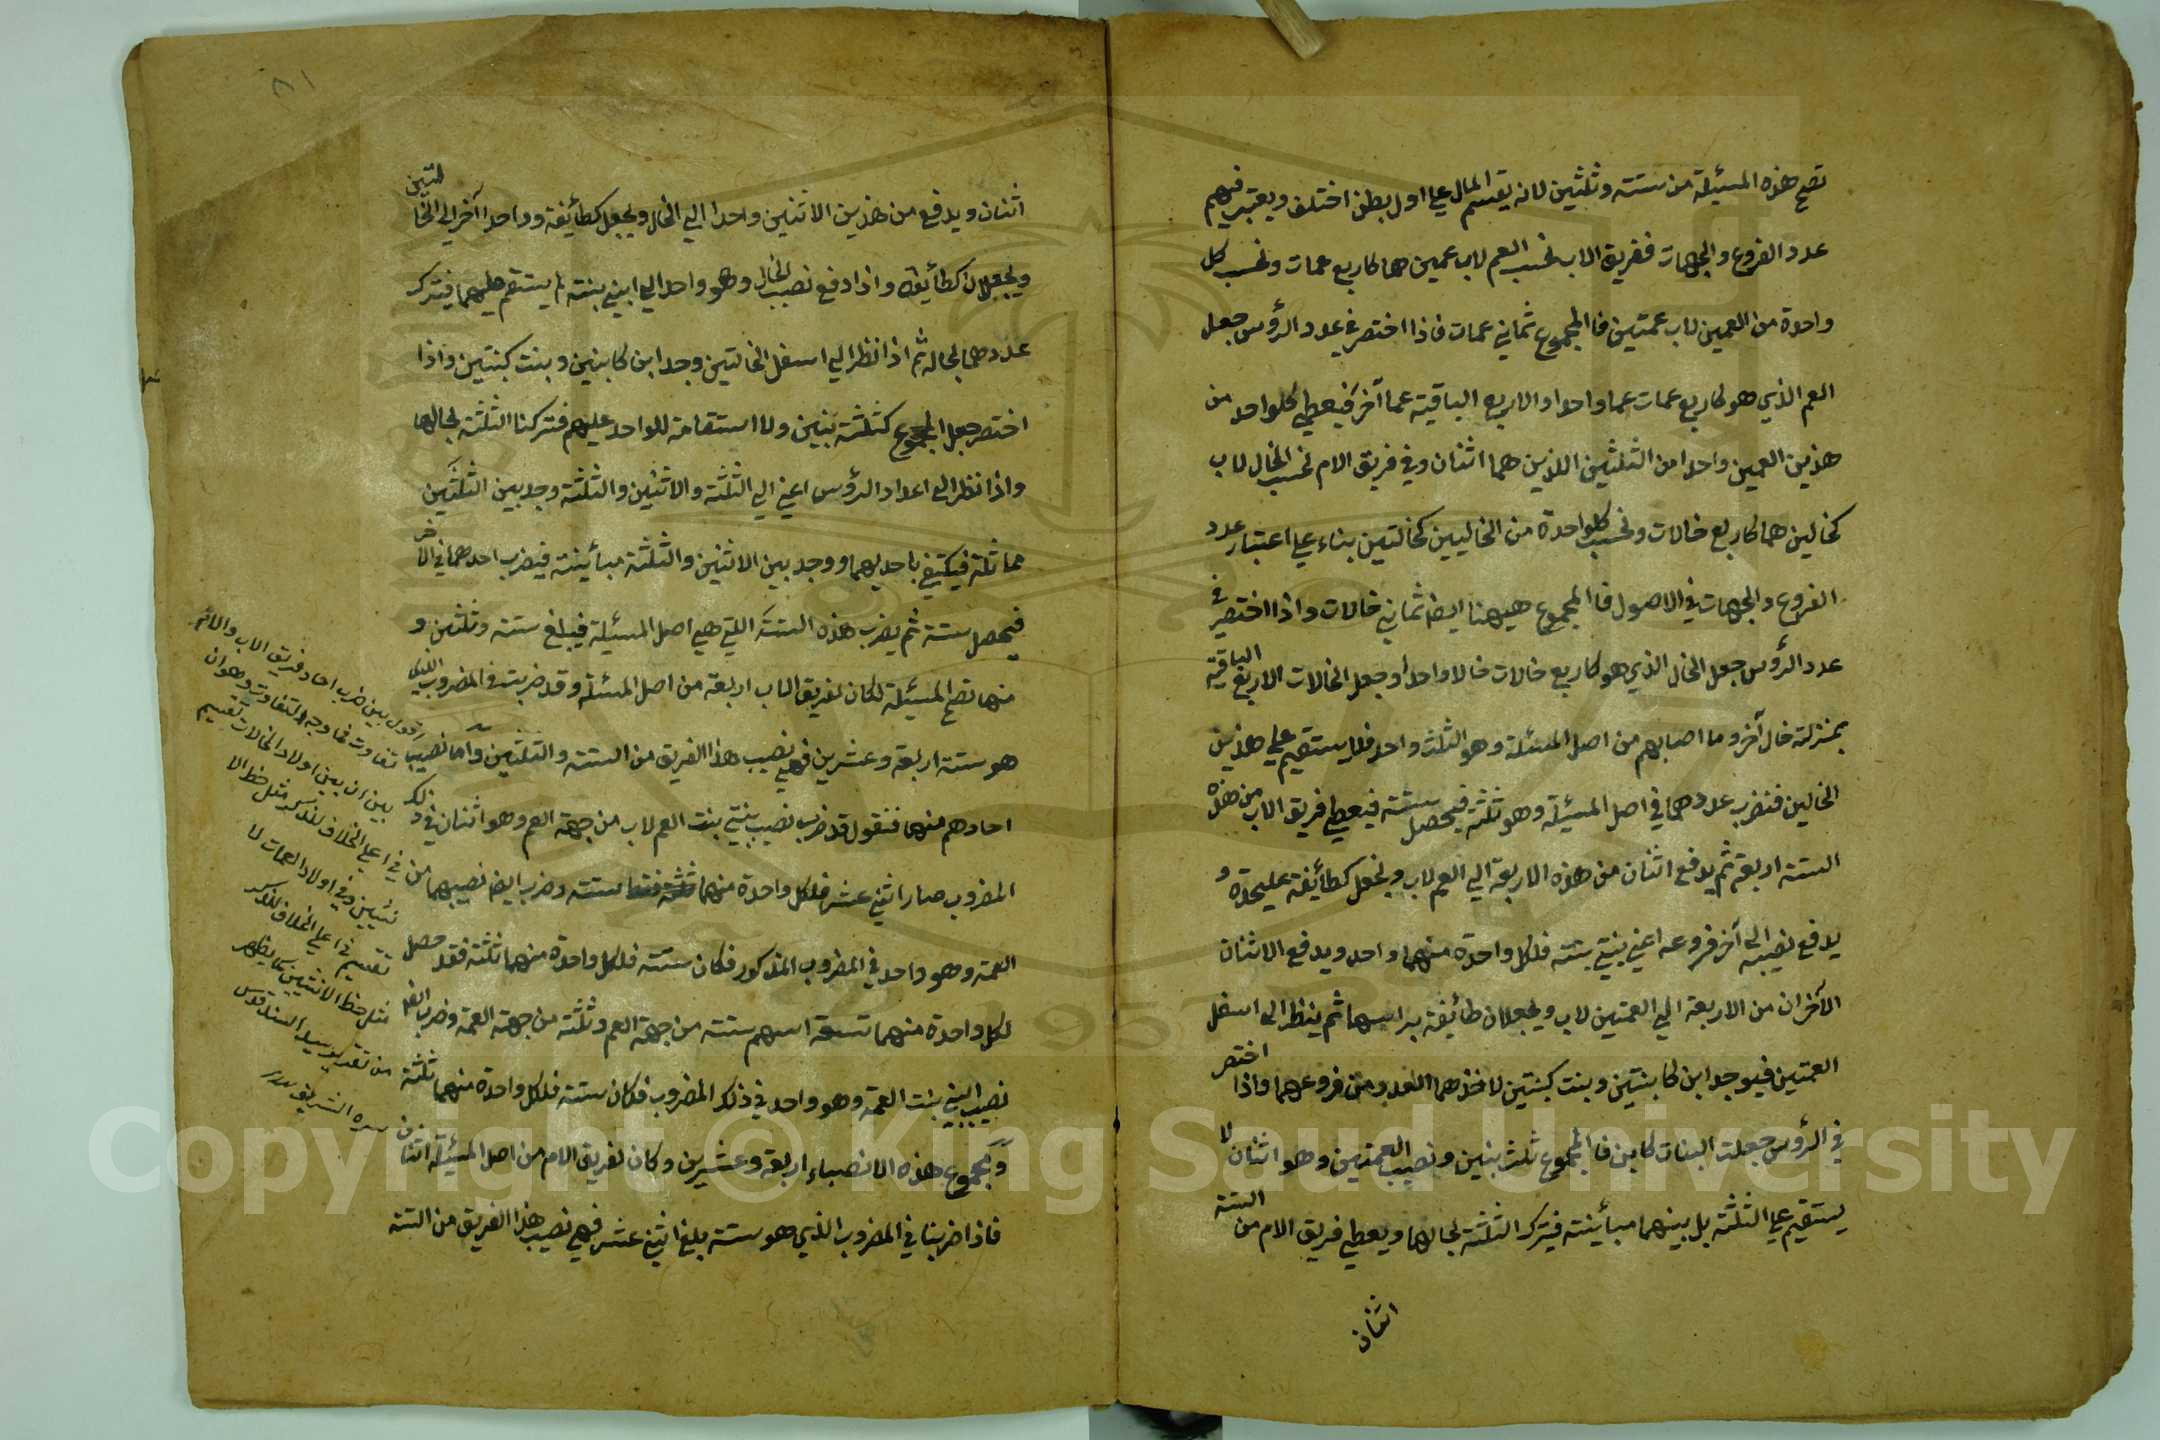 تصح هذه المسئلة من ستة وثلثين لانه يقسم المال علي اول بطن اختلف ويعتبر فيهم
عدد الفروع والجهات ففريق الاب نحسب العم لاب عمين هما كاربع عمات ونحسب كل
واحدة من العمين لاب عمتين فالمجموع ثماني عمات فاذا اختصر في عدد الرؤس جعل
العم الذي هو كاربع عمات عما واحدا والاربع الباقية عما آخر فيعطي كلواحد من
هذين العمين واحدا من الثلثين اللذين هما اثنان وفي فريق الام نحسب الخال لاب
كخالين هما كاربع خالات ونحسب كلواحدة من الخاليين كخالتين بناء علي اعتبار عدد
الفروع والجهات في الاصول فالمجموع هيهنا ايضا ثماني خالات واذا اختصر في
عدد الرؤس جعل الخال الذي هو كاربع خالات خالا واحدا وجعل الخالات الاربع الباقية
بمنزلة خال آخر وما اصابهم من اصل المسئلة وهو الثلث واحد فلا يستقيم علي هذين
الخالين فنضرب عددهما في اصل المسئلة وهو ثلثة فيحصل ستة فيعطي فريق الاب من هذه
الستة اربعة ثم يدفع اثنان من هذه الاربعة الي العم لاب ويجعل كطائفة عليحدة و
يدفع نصيبه الي آخر فروعه اعني بنتي بنته فلكل واحدة منهما واحد ويدفع الاثنان
الآخران من الاربعة الي العمتين لاب ويجعلان طائفة براسها ثم ينظر الي اسفل
العمتين فيوجد ابن كابنين وبنت كبنتين لاخذهما العدد من فروعهما واذا اختصر
في الرؤس جعلت البنات كابن فالمجموع ثلث بنين ونصيب العمتين وهو اثنان لا
يستقيم علي الثلثة بل بينهما مبأينة فيترك الثلثة بحالها ويعطي فريق الام من الستة
اثنان
٨١
اثنان ويدفع من هذين الاثنين واحدا الي الخال ويجعل كطائفة وواحدا آخر الي الخالتين
ويجعلان كطائفة واذا دفع نصيب الخال وهو واحد الي ابني بنته لم يستقم عليهما فيترك
عددهما بحاله ثم اذا نظر الي اسفل الخالتين وجد ابن كابنين وبنت كبنتين واذا
اختصر جعل المجموع كثلثة بنين ولا استقامة للواحد عليهم فتركنا الثلثة بحالها
واذا نظر الي اعداد الرؤس اعني الي الثلثة والاثنين والثلثة وجد بين الثلثتين
مماثلة فيكتفي باحديهما ووجد بين الاثنين والثلثة مبأينة فيضرب احدهما في الاخر
فيحصل ستة ثم يضرب هذه الستة اللتي هي اصل المسئلة فيبلغ ستة وثلثين و
منها تصح المسئلة لكان لفريق الاب اربعة من اصل المسئلة وقد ضربت في المضروب الذي
هو ستة اربعة وعشرين فهي نصيب هذا الفريق من الستة والثلثين واما نصيب
احادهم منها فنقول قد ضرب نصيب بنتي بنت العم لاب من جهة العم وهو اثنان في ذلك
المضروب صار اثني عشر فلكل واحدة منهما ستة وضرب ايضا نصيبهما من
العمة وهو واحد في المضروب المذكور فكان ستة فلكل واحدة منهما ثلثة فقد حصل
لكل واحدة منهما تسعة اسهم ستة من جهة العم وثلثة من جهة العمة وضرب ايضا
نصيب ابني بنت العمة وهو واحد في ذلك المضروب فكان ستة فلكل واحدة منهما ثلثة
ومجموع هذه الانصباء اربعة وعشرين وكان لفريق الام من اصل المسئلة اثنان
فاذا ضربنا في المضروب الذي هو ستة بلغ اثني عشر فهي نصيب هذا الفريق من الستة
بين ضرب احاد فريق الاب والام
تفاوت فما وجه التفاوت وهو ان
بين ان بين اولاد الخالات تقسيم
في اعلي الخلاف للذكر مثل حظ الا
نثيين وفي اولاد العمات لا
تقسيم في اعلي الخلاف للذكر
مثل حظ الانثيين كما يظهر
من تقدير سيد السند قدس
سره الشريف
Copyright © King Saud University